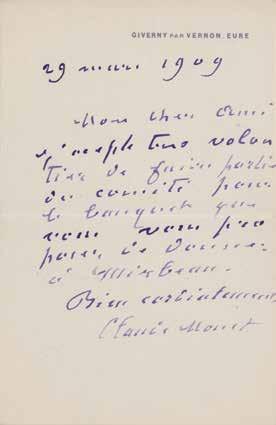 GIVERNY PAR VERNON. EURE
29 mars 1909
Mon cher ami
j'accepte très volon
tiers de faire partie
du comité pour
le banquet que
vous vous pro
posez de donner
à Mirbeau.
Bien cordialement,
Claude Monet